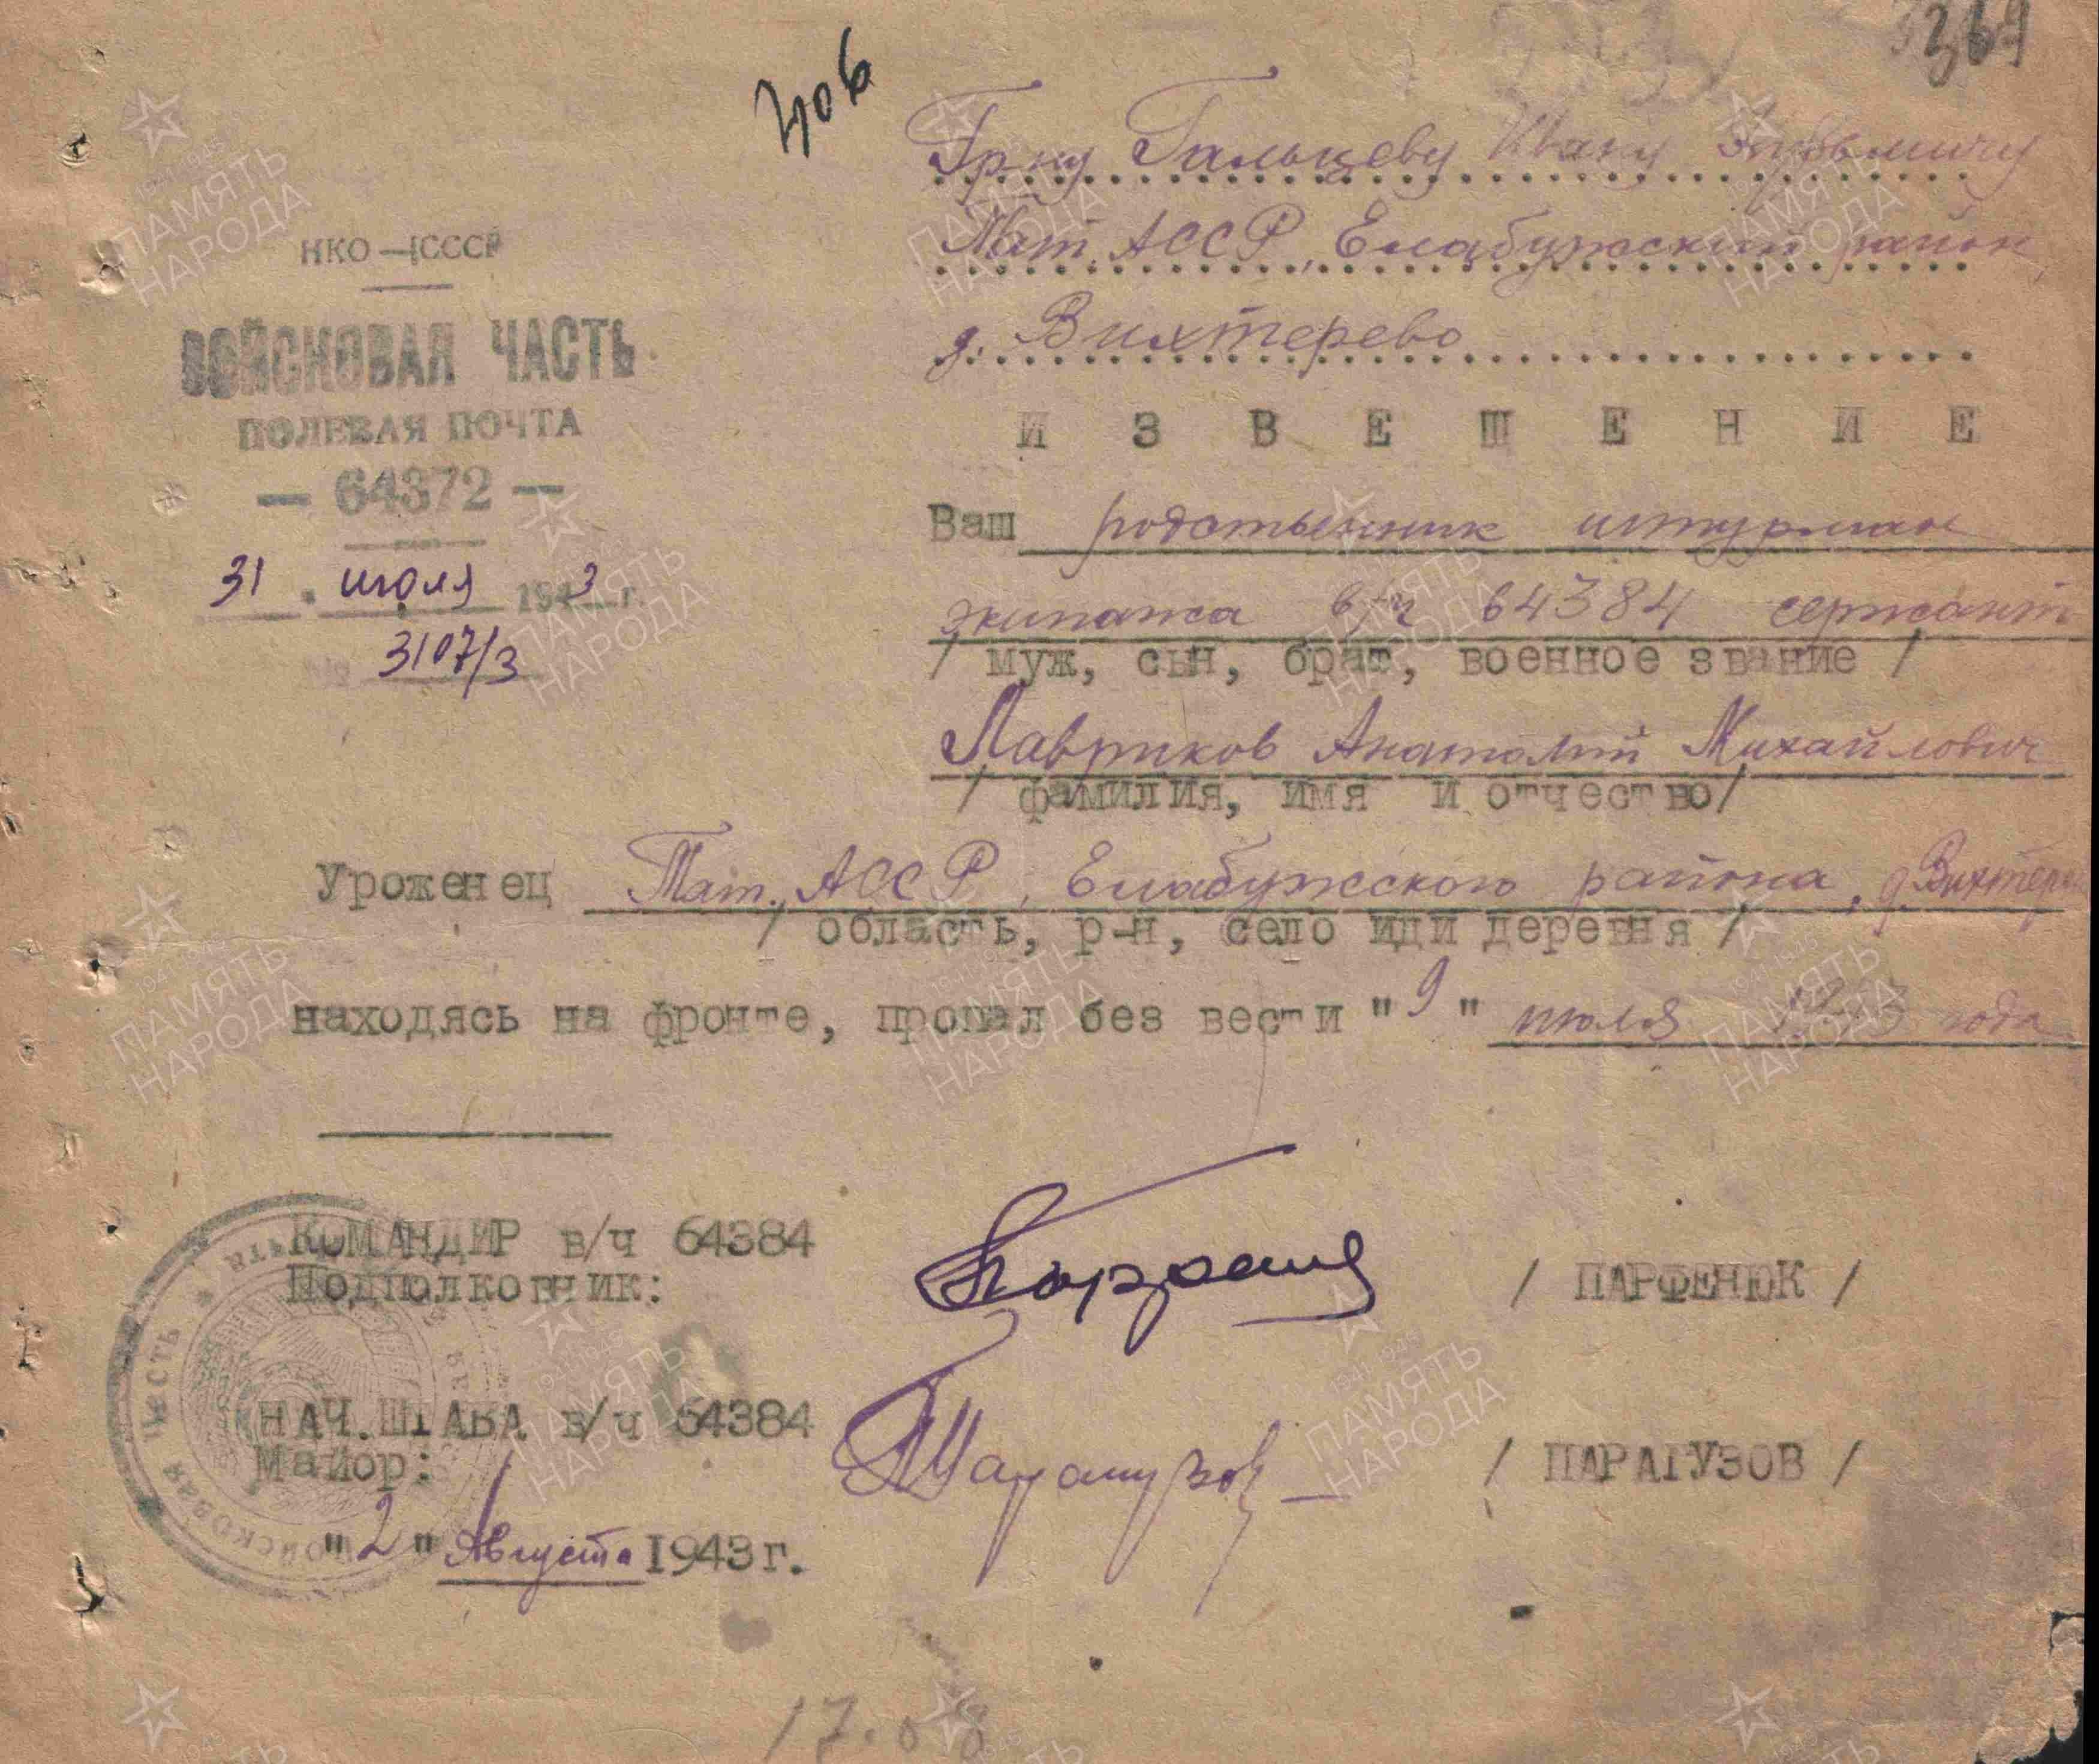 369
406
Гр-ну Галыцеву Ивану Кузьмичу
Тат. АССР, Елабужский район,
д. Вихтерево
НКО — СССР
ВОЙСКОВАЯ ЧАСТЬ
ПОЛЕВАЯ ПОЧТА
— 64372 —
31 . июля 1943 г.
№ 3107/3
И З В Е Щ Е Н И Е
Ваш родственник штурман
экипажа в/ч 64384 сержант
/ муж, сын, брат, военное звание /
Лавриков Анатолий Михайлович
/ фамилия, имя и отчество/
Уроженец Тат. АССР, Елабужского района, д. Вихтере
/ область, р-н, село иди деревня /
находясь на фронте, пропал без вести "9" июля 1943 года
КОМАНДИР в/ч 64384
Подполковник: / ПАРФЕНЮК /
НАЧ.ШТАБА в/ч 64384
Майор: / ПАРАГУЗОВ /
"2" Августа 1943 г.
ВОЙСКОВАЯ ЧАСТЬ
17.08
ПАМЯТЬ НАРОДА
1941-1945